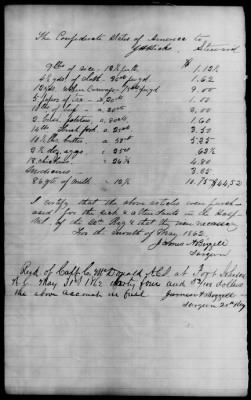 The Confederate States of America to
Steward
9 lbs of rice 12½ pr lb $ 1.12½
4½ yds of cloth 36 cts pr yd 1.62
12 yds 75 pr yd 9.00
5 papers of a 20 cts 1.00
a 20 cts 2.00
2 potatoes a 80 cts 1.60
14 lbs a 25 cts 3.50
10½ lbs butter a 50 cts 5.25
2½ doz eggs a 25 cts 62½
18 chickens a 26⅔ 4.80
Sundries 3.25
86 qts of milk a 12½ 10.75 $44.52
I certify that the above articles were purch-
ased for the sick & attendants in the Hosp-
ital of the 20th Reg & that they were necessary
for the month of May 1862
James A Bizzell
Surgeon
Recd of Capt C. McDonald A.C.S. at Fort
N.C. May 31st 1862 forty four and 52/100 dollars
the above account in full James A Bizzell
Surgeon 20th Reg